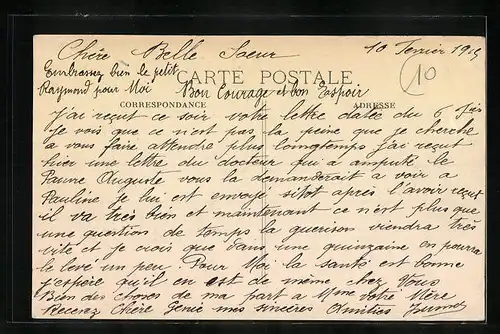 Chère Belle Soeur 10 Fevrier 1915
Embrassez bien le petit
Raymond pour Moi Bon Courage et bon Espoir
10
CARTE POSTALE
CORRESPONDANCE ADRESSE
J'ai reçut ce soir votre lettre datée du 6
Je vois que ce n'est pas la peine que je cherche
a vous faire attendre plus longtemps j'ai reçut
hier une lettre du docteur qui a amputé le
Pauvre Auguste vous la demanderait a voir a
Pauline je lui est envoyé sitot après l'avoir reçut
il va très bien et maintenant ce n'est plus que
une question de temps la guerison viendra très
vite et je crois que dans une quinzaine on pourra
le levé un peu. Pour Moi la santé est bonne
j'espère qu'il en est de même chez Vous
Bien des choses de ma part a Mme votre Mère
Recevez Chère Genie mes sincères Amitiés